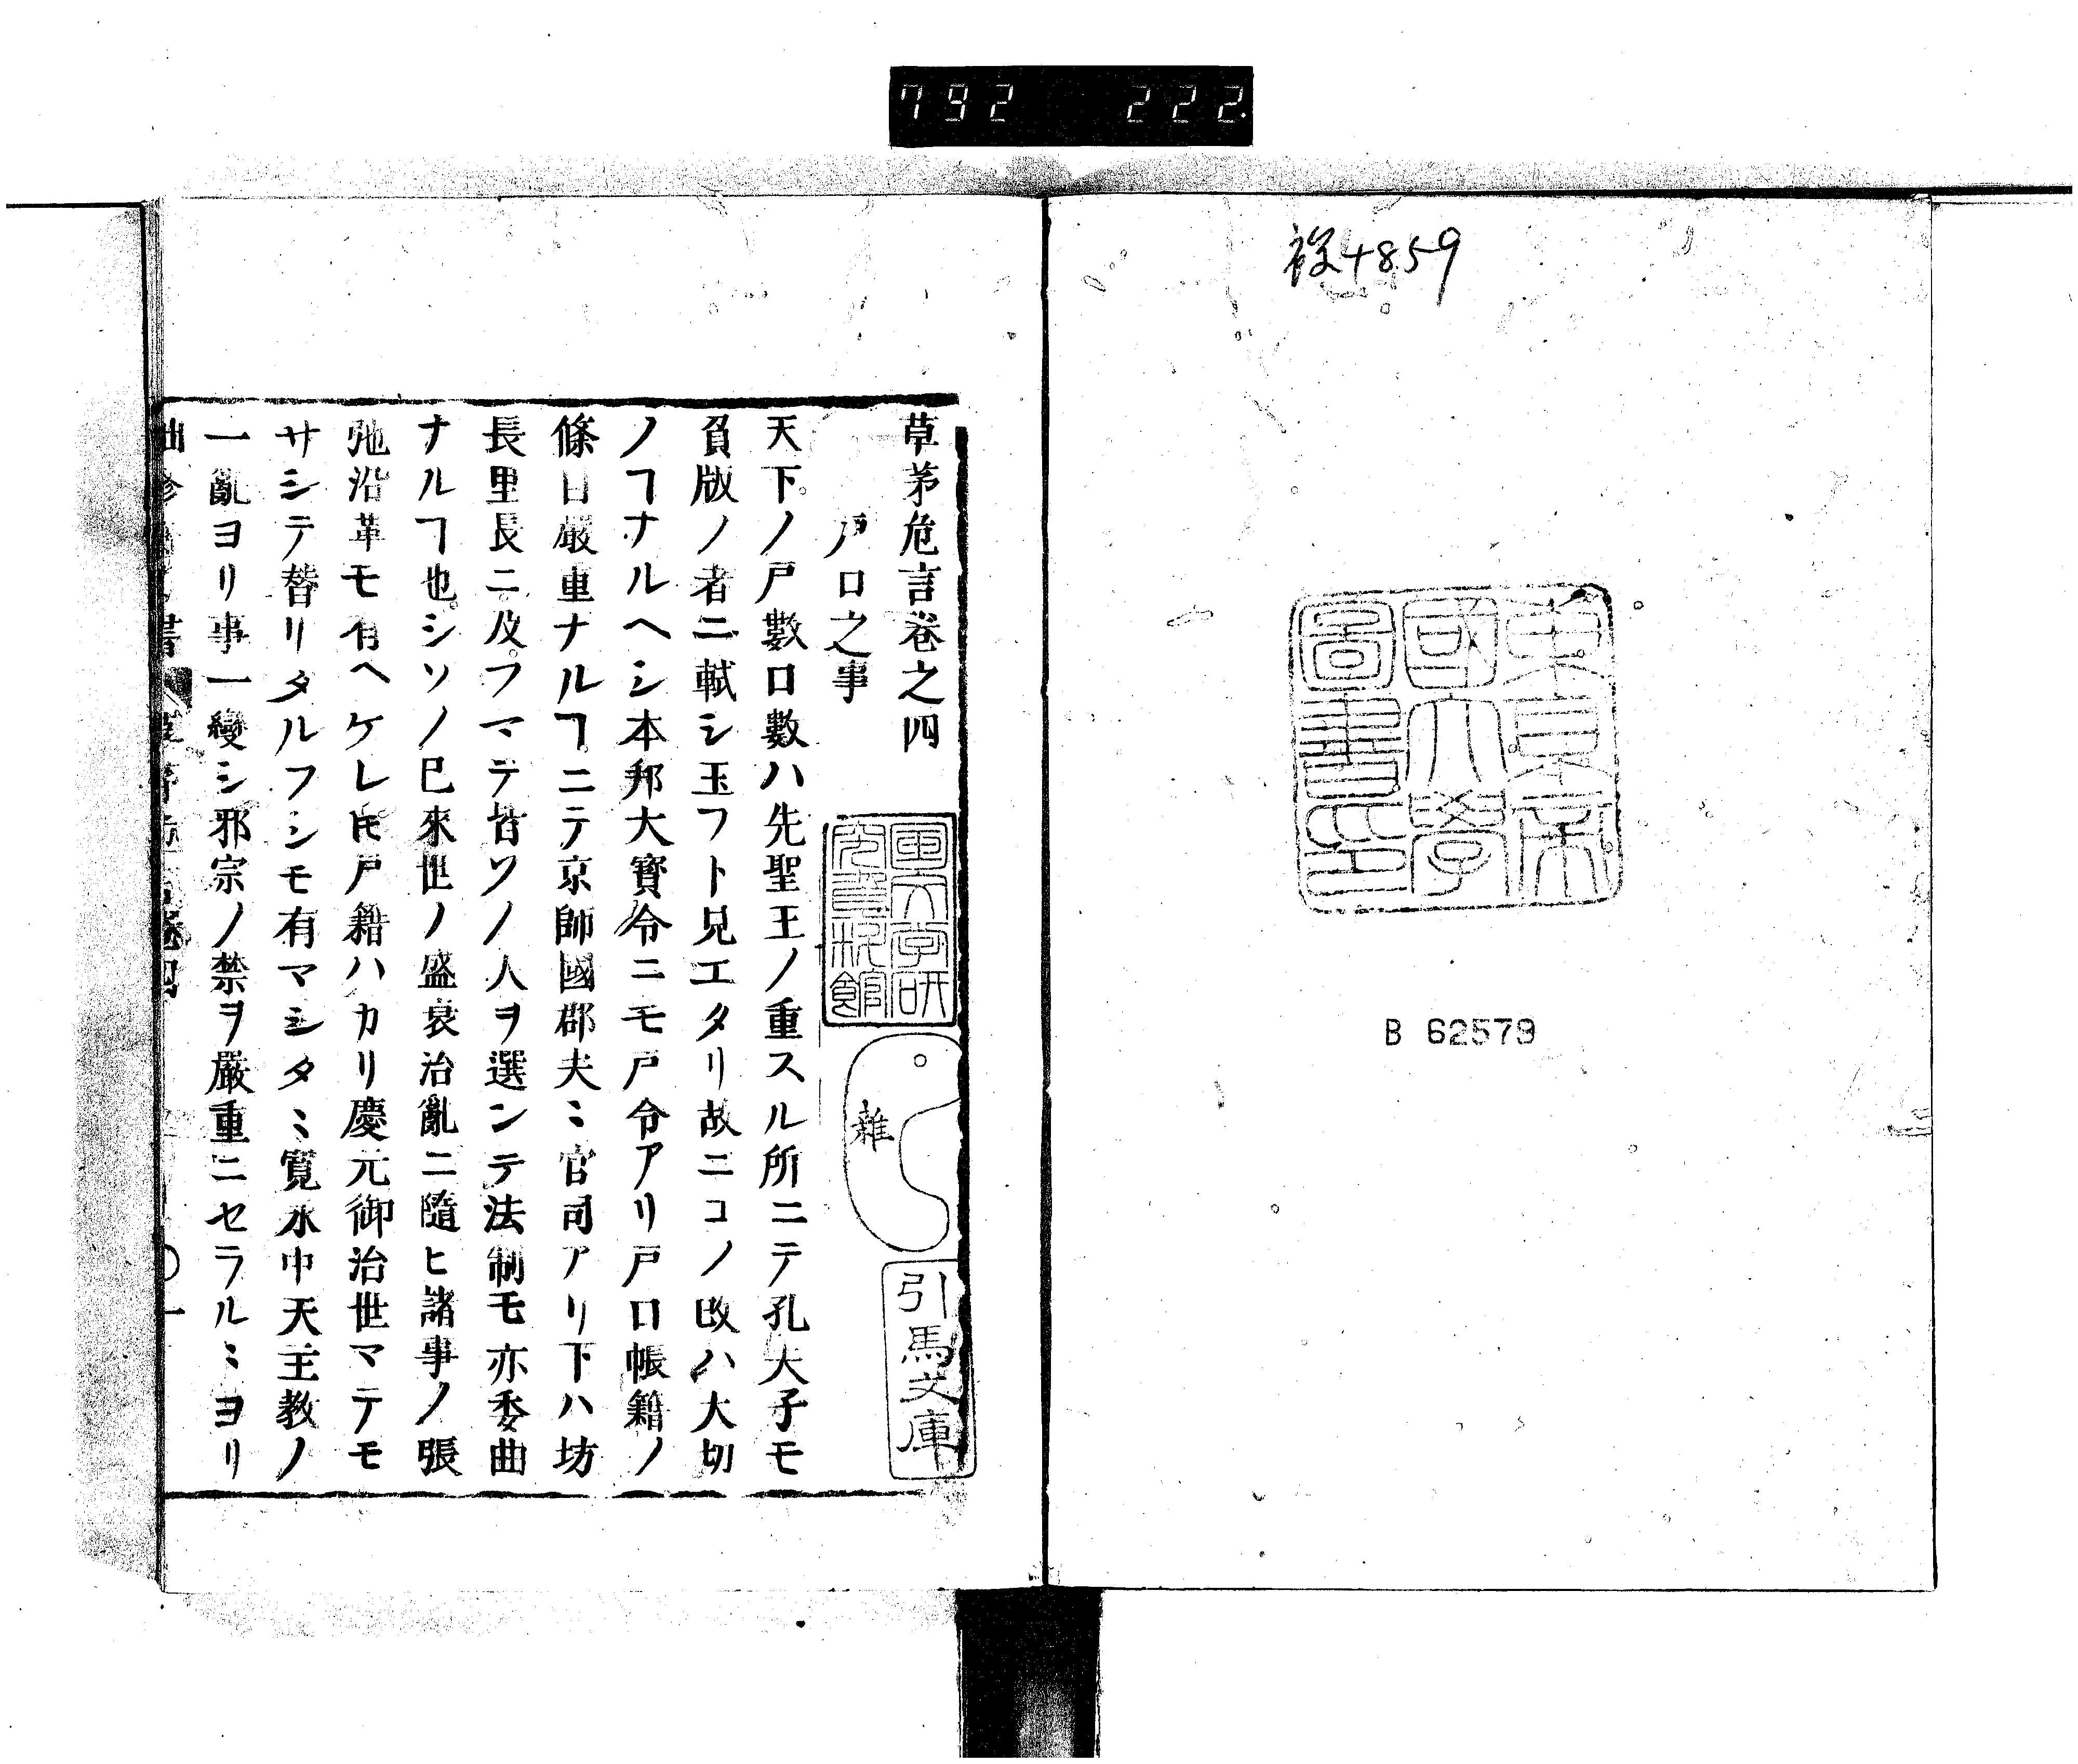 792 222
4859
東京帝國大學圖書印
B 62579
草茅危言卷之四
戸口之事
天下ノ戸數口數ハ先聖王ノ重スル所ニテ孔夫子モ
負版ノ者ニ軾シ玉フト見エタリ故ニコノ政ハ大切
ノヿナルヘシ本邦大寳令ニモ戸令アリ戸口帳籍ノ
條目嚴重ナルヿニテ京師國郡夫ミ官司アリ下ハ坊
長里長ニ及フマテ皆ソノ人ヲ選ンテ法制モ亦委曲
ナルヿ也シソノ已來世ノ盛衰治亂ニ隨ヒ諸事ノ張
弛沿革モ有ヘケレ𪜈戸籍ハカリ慶元御治世マテモ
サシテ替リタルフシモ有マシタミ寛永中天主教ノ
一亂ヨリ事一變シ邪宗ノ禁ヲ嚴重ニセラルミヨリ
雜
引馬文庫